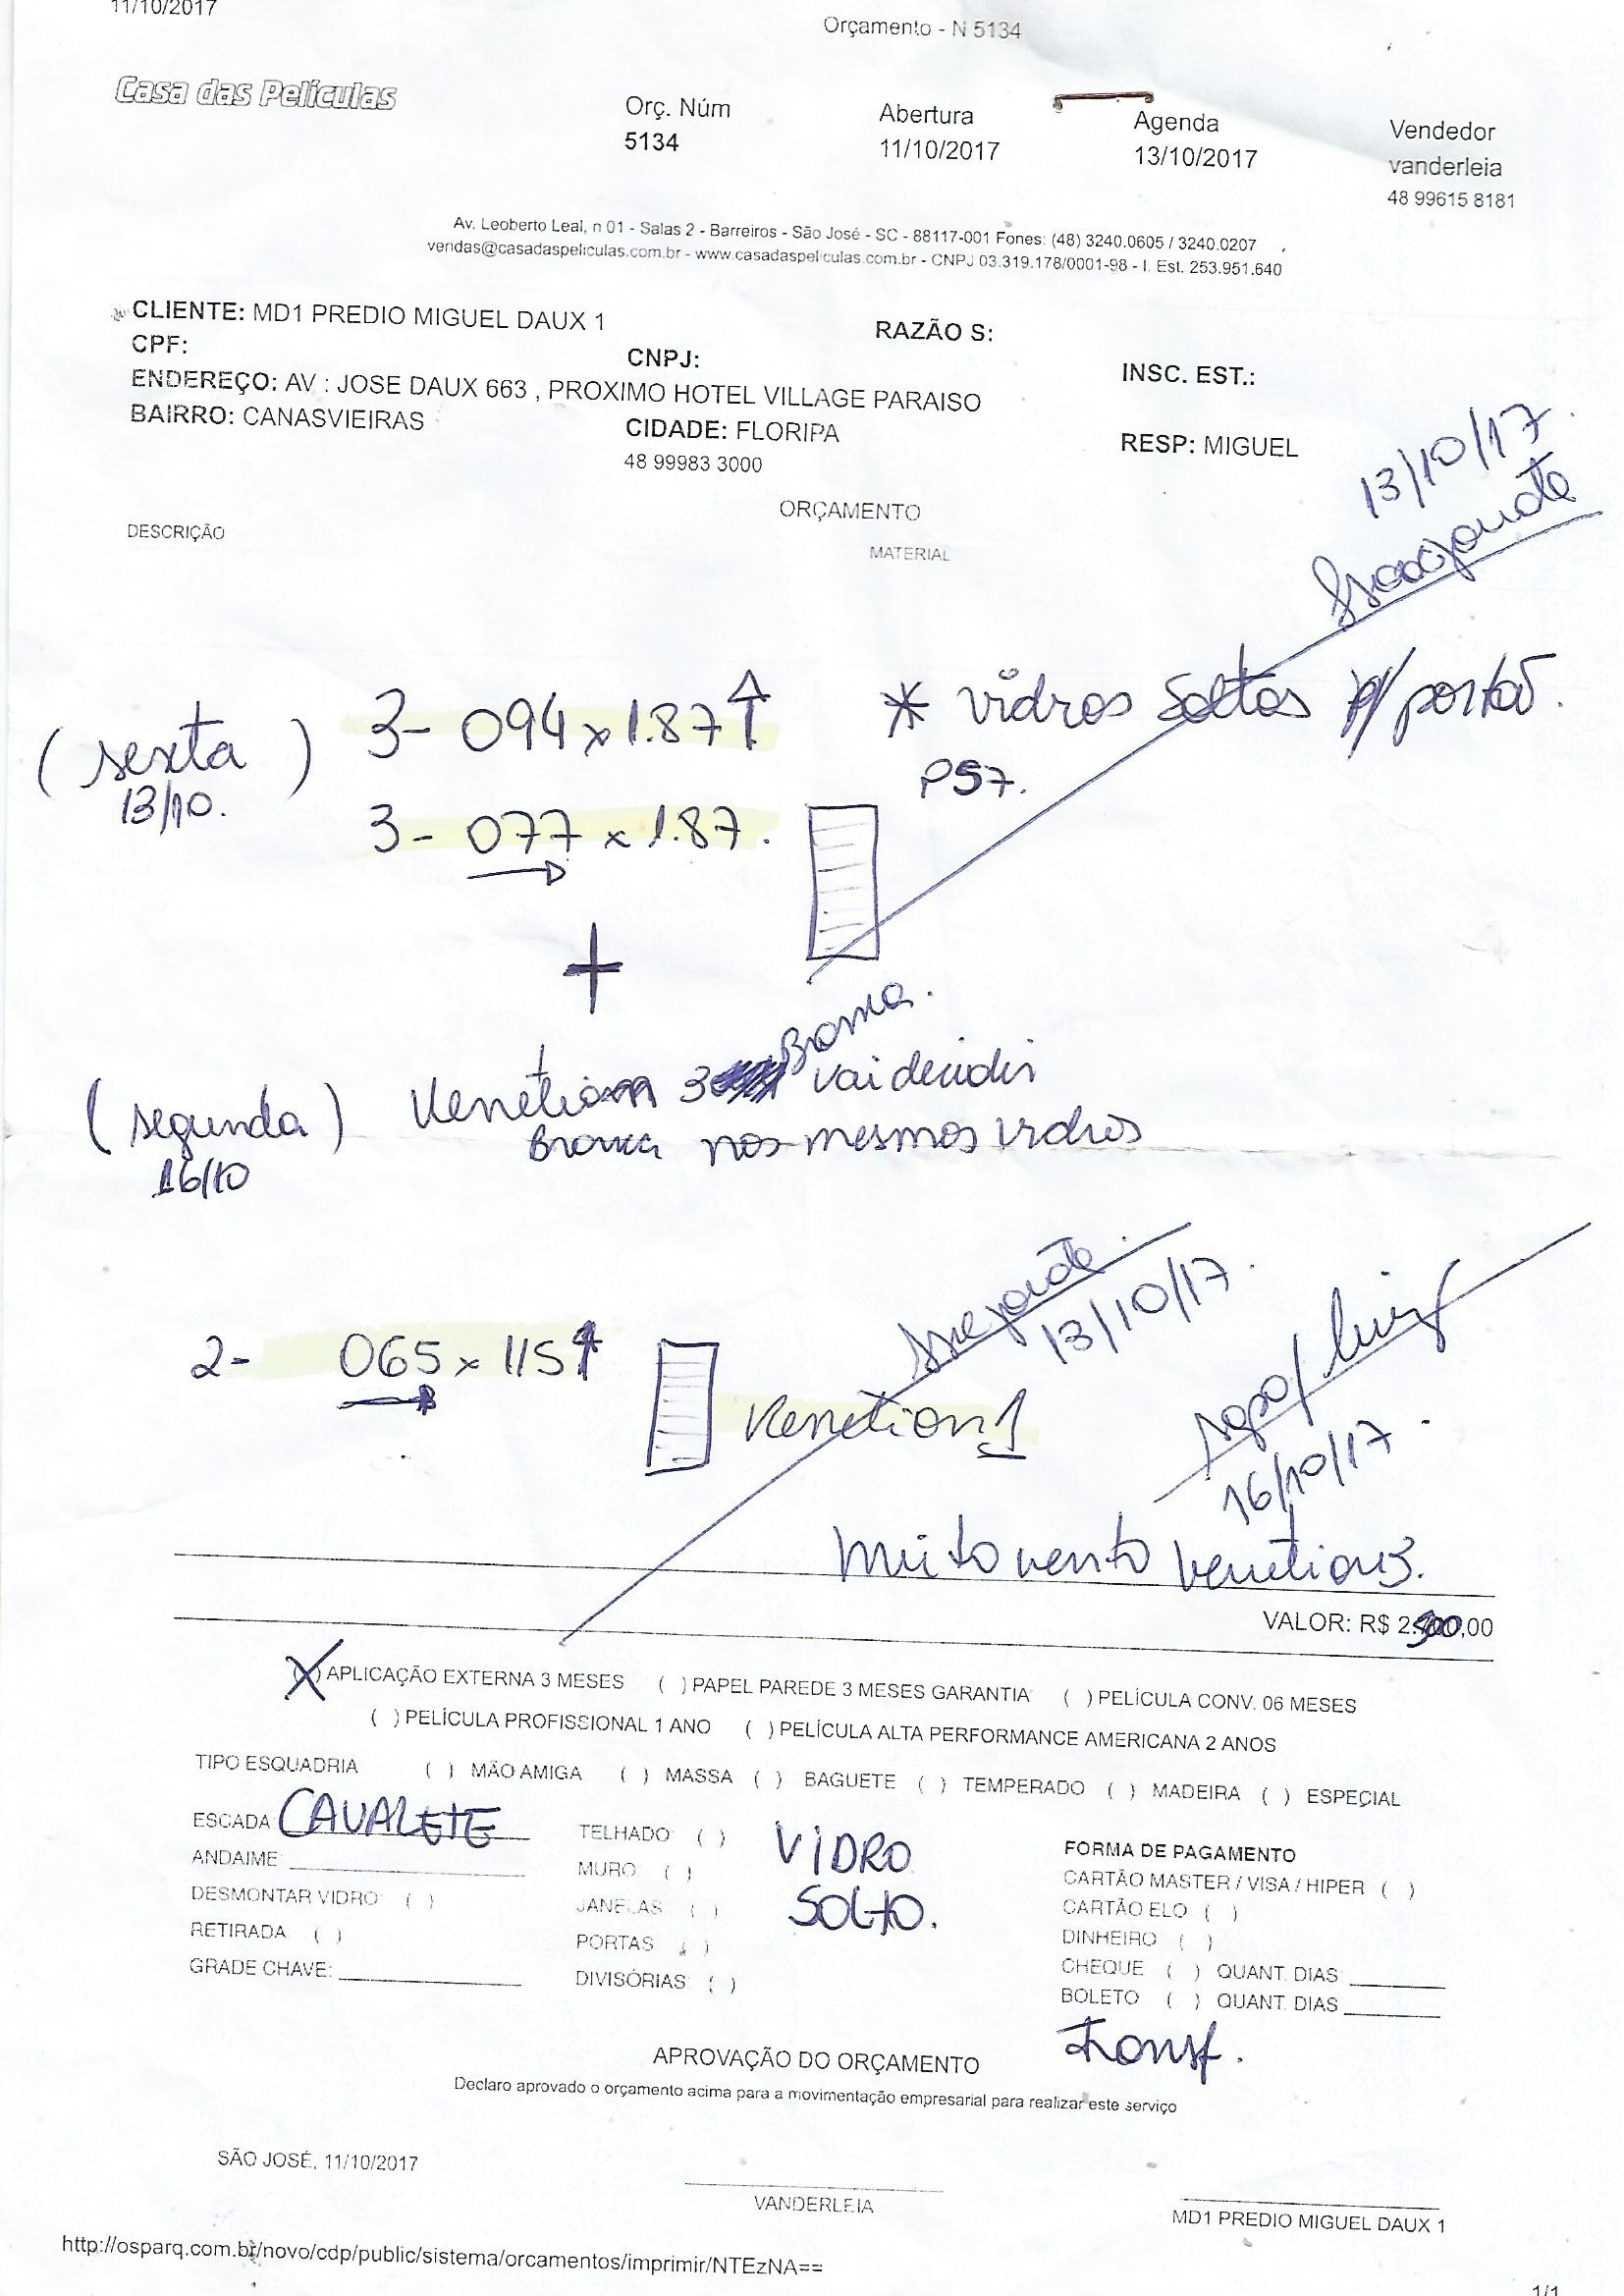 11/10/2017
Orçamento - N 5134
Casa das Películas
Orç. Núm
5134
Abertura
11/10/2017
Agenda
13/10/2017
Vendedor
vanderleia
48 99615 8181
Av. Leoberto Leal, n 01 - Salas 2 - Barreiros - São José - SC - 88117-001 Fones: (48) 3240.0605 / 3240.0207
vendas@casadaspeliculas.com.br - www.casadaspeliculas.com.br - CNPJ 03.319.178/0001-98 - I. Est. 253.951.640
CLIENTE: MD1 PREDIO MIGUEL DAUX 1
RAZÃO S:
CPF:
CNPJ:
INSC. EST.:
ENDEREÇO: AV : JOSE DAUX 663 , PROXIMO HOTEL VILLAGE PARAISO
BAIRRO: CANASVIEIRAS
CIDADE: FLORIPA
RESP: MIGUEL
48 99983 3000
13/10/17.
ORÇAMENTO
DESCRIÇÃO
MATERIAL
(sexta) 3- 094 x 1.87 ↑
* vidros soltos p/ portão.
13/10.
PS7.
3- 077 x 1.87.
→
+
Bronca.
(segunda) Venetian 3 vai decidir
16/10
nos mesmos vidros
13/10/17.
2- 065 x 115 ↑
→
Venetian 1
16/10/17.
muito vento venetian 3.
VALOR: R$ 2.500,00
(X) APLICAÇÃO EXTERNA 3 MESES ( ) PAPEL PAREDE 3 MESES GARANTIA ( ) PELÍCULA CONV. 06 MESES
( ) PELÍCULA PROFISSIONAL 1 ANO ( ) PELÍCULA ALTA PERFORMANCE AMERICANA 2 ANOS
TIPO ESQUADRIA ( ) MÃO AMIGA ( ) MASSA ( ) BAGUETE ( ) TEMPERADO ( ) MADEIRA ( ) ESPECIAL
ESCADA CAVALETE
ANDAIME
DESMONTAR VIDRO ( )
RETIRADA ( )
GRADE CHAVE:
TELHADO ( )
MURO ( )
JANELAS ( )
PORTAS ( )
DIVISÓRIAS ( )
VIDRO
SOLTO.
FORMA DE PAGAMENTO
CARTÃO MASTER / VISA / HIPER ( )
CARTÃO ELO ( )
DINHEIRO ( )
CHEQUE ( ) QUANT. DIAS
BOLETO ( ) QUANT. DIAS
Transf.
APROVAÇÃO DO ORÇAMENTO
Declaro aprovado o orçamento acima para a movimentação empresarial para realizar este serviço
SÃO JOSÉ, 11/10/2017
VANDERLEIA
MD1 PREDIO MIGUEL DAUX 1
http://osparq.com.br/novo/cdp/public/sistema/orcamentos/imprimir/NTEzNA==
1/1